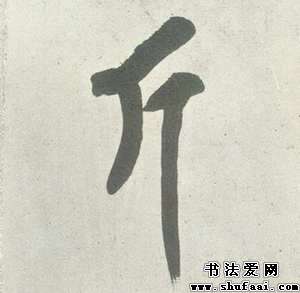 斤
书法爱网
www.shufaai.com